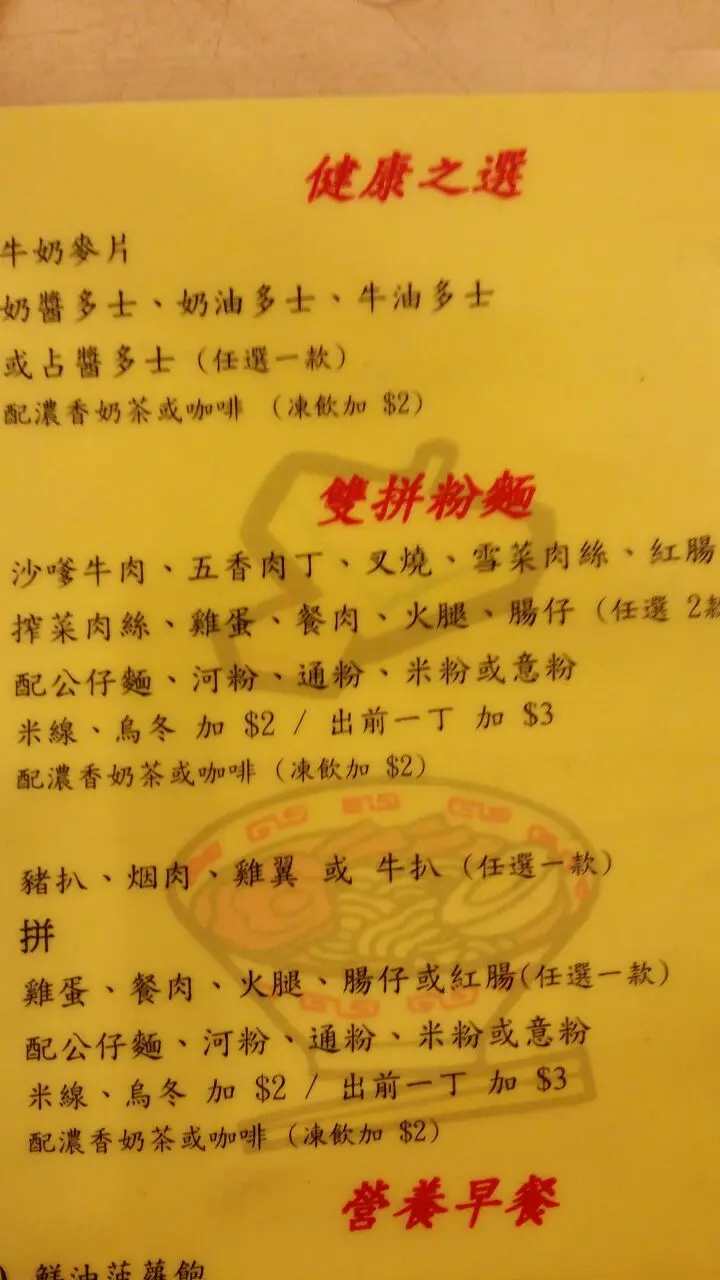 健康之選
牛奶麥片
奶醬多士、奶油多士、牛油多士
或占醬多士 (任選一款)
配濃香奶茶或咖啡 (凍飲加 $2)
雙拼粉麵
沙嗲牛肉、五香肉丁、叉燒、雪菜肉絲、紅腸
搾菜肉絲、雞蛋、餐肉、火腿、腸仔 (任選 2款
配公仔麵、河粉、通粉、米粉或意粉
米線、烏冬 加 $2 / 出前一丁 加 $3
配濃香奶茶或咖啡 (凍飲加 $2)
豬扒、烟肉、雞翼 或 牛扒 (任選一款)
拼
雞蛋、餐肉、火腿、腸仔或紅腸(任選一款)
配公仔麵、河粉、通粉、米粉或意粉
米線、烏冬 加 $2 / 出前一丁 加 $3
配濃香奶茶或咖啡 (凍飲加 $2)
營養早餐
鮮油菠蘿飽